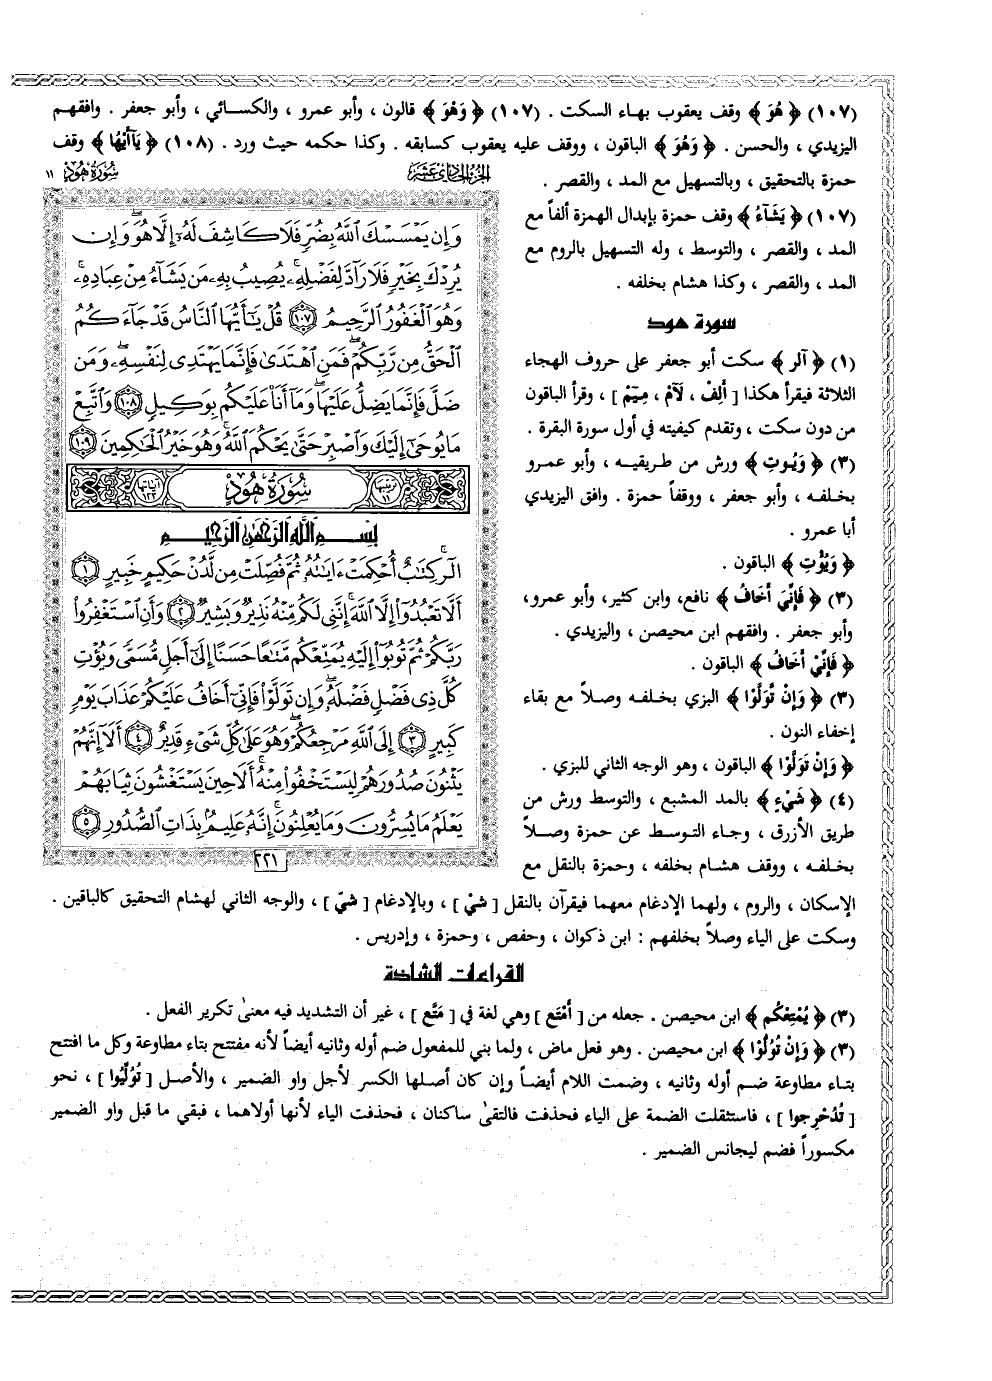 (١٠٧) ﴿ هُوَ ﴾ وقف يعقوب بهاء السكت . (١٠٧) ﴿ وَهْوَ ﴾ قالون ، وأبو عمرو ، والكسائي ، وأبو جعفر . وافقهم
اليزيدي ، والحسن . ﴿ وَهُوَ ﴾ الباقون ، ووقف عليه يعقوب كسابقه . وكذا حكمه حيث ورد . (١٠٨) ﴿ يَآأَيُّهَا ﴾ وقف
حمزة بالتحقيق ، وبالتسهيل مع المد ، والقصر .
(١٠٧) ﴿ يَشَآءُ ﴾ وقف حمزة بإبدال الهمزة ألفاً مع
المد ، والقصر ، والتوسط ، وله التسهيل بالروم مع
المد ، والقصر ، وكذا هشام بخلفه .
سورة هود
(١) ﴿ آلر ﴾ سكت أبو جعفر على حروف الهجاء
الثلاثة فيقرأ هكذا [ أَلِفْ ، لَآمْ ، مِيَمْ ] ، وقرأ الباقون
من دون سكت ، وتقدم كيفيته في أول سورة البقرة .
(٣) ﴿ وَيُوتِ ﴾ ورش من طريقيه ، وأبو عمرو
بخلفه ، وأبو جعفر ، ووقفاً حمزة . وافق اليزيدي
أبا عمرو .
﴿ وَيُؤْتِ ﴾ الباقون .
(٣) ﴿ فَإِنِّيَ أَخَافُ ﴾ نافع، وابن كثير، وأبو عمرو،
وأبو جعفر . وافقهم ابن محيصن ، واليزيدي .
﴿ فَإِنِّيْ أَخَافُ ﴾ الباقون .
(٣) ﴿ وَإِنْ تَّوَلَّوْا ﴾ البزي بخلفه وصلاً مع بقاء
إخفاء النون .
﴿ وَإِنْ تَوَلَّوْا ﴾ الباقون ، وهو الوجه الثاني للبزي .
(٤) ﴿ شَيْءٍ ﴾ بالمد المشبع ، والتوسط ورش من
طريق الأزرق ، وجاء التوسط عن حمزة وصلاً
بخلفه ، ووقف هشام بخلفه ، وحمزة بالنقل مع
الإسكان ، والروم ، ولهما الإدغام معهما فيقرآن بالنقل [ شيْ ] ، وبالإدغام [ شيّ ] ، والوجه الثاني لهشام التحقيق كالباقين .
وسكت على الياء وصلاً بخلفهم : ابن ذكوان ، وحفص ، وحمزة ، وإدريس .
الجزء الحادي عشر
سورة هود ١١
وَإِن يَمْسَسْكَ ٱللَّهُ بِضُرٍّ فَلَا كَاشِفَ لَهُۥٓ إِلَّا هُوَۖ وَإِن
يُرِدْكَ بِخَيْرٍ فَلَا رَآدَّ لِفَضْلِهِۦۚ يُصِيبُ بِهِۦ مَن يَشَآءُ مِنْ عِبَادِهِۦۚ
وَهُوَ ٱلْغَفُورُ ٱلرَّحِيمُ ١٠٧ قُلْ يَٰٓأَيُّهَا ٱلنَّاسُ قَدْ جَآءَكُمُ
ٱلْحَقُّ مِن رَّبِّكُمْۖ فَمَنِ ٱهْتَدَىٰ فَإِنَّمَا يَهْتَدِى لِنَفْسِهِۦۖ وَمَن
ضَلَّ فَإِنَّمَا يَضِلُّ عَلَيْهَاۖ وَمَآ أَنَا۠ عَلَيْكُم بِوَكِيلٍ ١٠٨ وَٱتَّبِعْ
مَا يُوحَىٰٓ إِلَيْكَ وَٱصْبِرْ حَتَّىٰ يَحْكُمَ ٱللَّهُۚ وَهُوَ خَيْرُ ٱلْحَٰكِمِينَ ١٠٩
ترتيبها ١١ سُورَةُ هُودٍ آياتها ١٢٣
بِسْمِ ٱللَّهِ ٱلرَّحْمَٰنِ ٱلرَّحِيمِ
الٓرۚ كِتَٰبٌ أُحْكِمَتْ ءَايَٰتُهُۥ ثُمَّ فُصِّلَتْ مِن لَّدُنْ حَكِيمٍ خَبِيرٍ ١
أَلَّا تَعْبُدُوٓا۟ إِلَّا ٱللَّهَۚ إِنَّنِى لَكُم مِّنْهُ نَذِيرٌ وَبَشِيرٌ ٢ وَأَنِ ٱسْتَغْفِرُوا۟
رَبَّكُمْ ثُمَّ تُوبُوٓا۟ إِلَيْهِ يُمَتِّعْكُم مَّتَٰعًا حَسَنًا إِلَىٰٓ أَجَلٍ مُّسَمًّى وَيُؤْتِ
كُلَّ ذِى فَضْلٍ فَضْلَهُۥۖ وَإِن تَوَلَّوْا۟ فَإِنِّىٓ أَخَافُ عَلَيْكُمْ عَذَابَ يَوْمٍ
كَبِيرٍ ٣ إِلَى ٱللَّهِ مَرْجِعُكُمْۖ وَهُوَ عَلَىٰ كُلِّ شَىْءٍ قَدِيرٌ ٤ أَلَآ إِنَّهُمْ
يَثْنُونَ صُدُورَهُمْ لِيَسْتَخْفُوا۟ مِنْهُۚ أَلَا حِينَ يَسْتَغْشُونَ ثِيَابَهُمْ
يَعْلَمُ مَا يُسِرُّونَ وَمَا يُعْلِنُونَۚ إِنَّهُۥ عَلِيمٌۢ بِذَاتِ ٱلصُّدُورِ ٥
٢٢١
القراءات الشاذة
(٣) ﴿ يُمْتِعْكُم ﴾ ابن محيصن . جعله من [ أَمْتَع ] وهي لغة في [ مَتَّع ] ، غير أن التشديد فيه معنىٰ تكرير الفعل .
(٣) ﴿ وَإِنْ تُوُلُّوْا ﴾ ابن محيصن . وهو فعل ماض ، ولما بني للمفعول ضم أوله وثانيه أيضاً لأنه مفتتح بتاء مطاوعة وكل ما افتتح
بتاء مطاوعة ضم أوله وثانيه ، وضمت اللام أيضاً وإن كان أصلها الكسر لأجل واو الضمير ، والأصل [ تُوُلِّيُوا ] ، نحو
[ تُدُحْرِجوا ] ، فاستثقلت الضمة على الياء فحذفت فالتقىٰ ساكنان ، فحذفت الياء لأنها أولاهما ، فبقي ما قبل واو الضمير
مكسوراً فضم ليجانس الضمير .